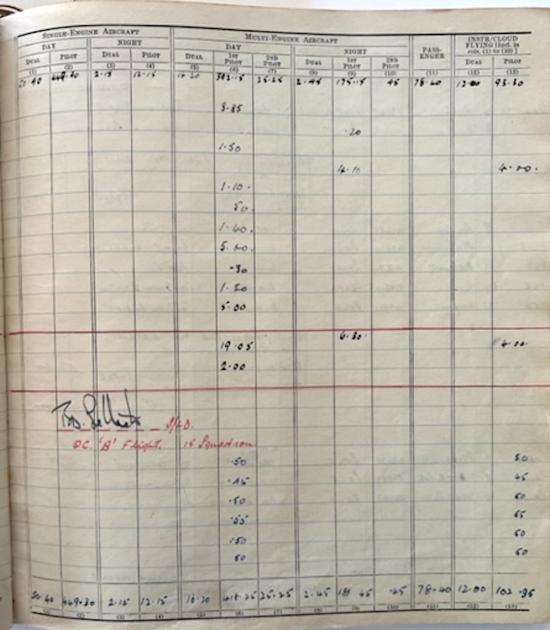 SINGLE-ENGINE AIRCRAFT MULTI-ENGINE AIRCRAFT INSTR/CLOUD FLYING [Incl. in cols. (1) to (10)]
DAY NIGHT DAY NIGHT PASS-ENGER
DUAL PILOT DUAL PILOT DUAL 1ST PILOT 2ND PILOT DUAL 1ST PILOT 2ND PILOT DUAL PILOT
(1) (2) (3) (4) (5) (6) (7) (8) (9) (10) (11) (12) (13)
449.30 2.15 12.15 16.20 25.25 2.45 175.15 45 78.40 12.00 93.30
·20
1.50
4.10 4.00
1.10
50
1.40
5.40
·30
5.00
6.30
19.05 4.00
2.00
S/LD.
OC. 'B' Flight. 15 Squadron
·50 50
·45 45
·50
50
50.40 449.30 2.15 12.15 16.20 418.25 25.25 2.45 181 45 78.40 12.00 102.35
(1) (2) (3) (4) (5) (6) (7) (8) (9) (10) (11) (12) (13)